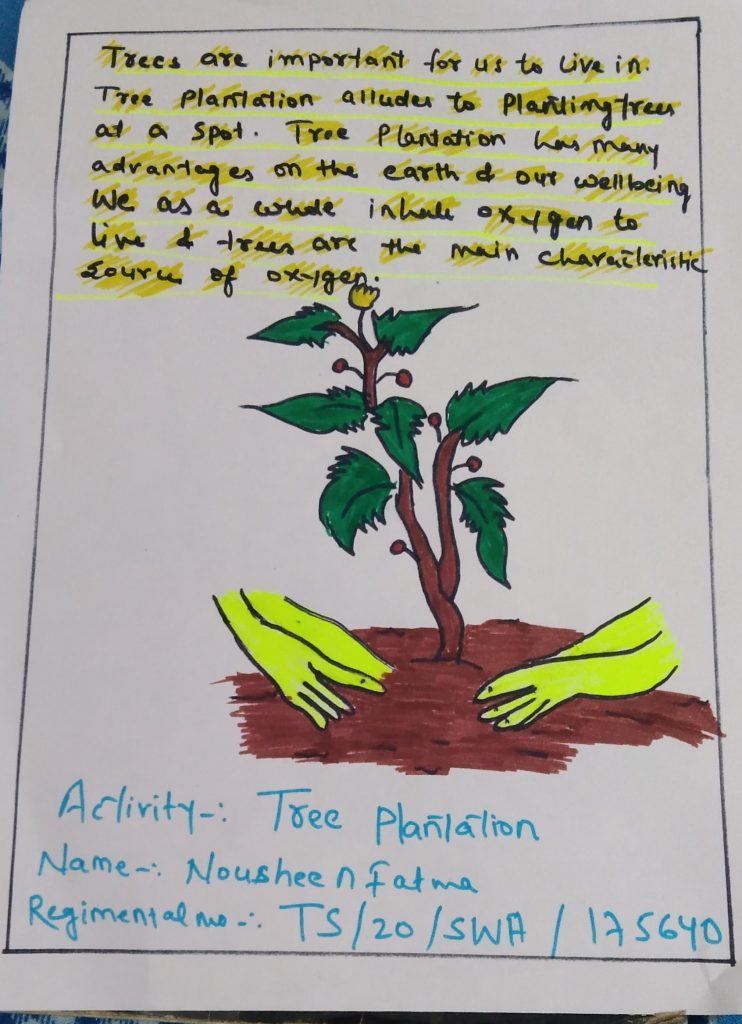 Trees are important for us to live in.
Tree Plantation alludes to Planting trees
at a spot. Tree Plantation has many
advantages on the earth & our wellbeing
We as a whole inhale oxygen to
live & trees are the main characteristic
source of oxygen.
Activity-: Tree Plantation
Name-: Nousheen Fatma
Regimental no-: TS/20/SWA/175640